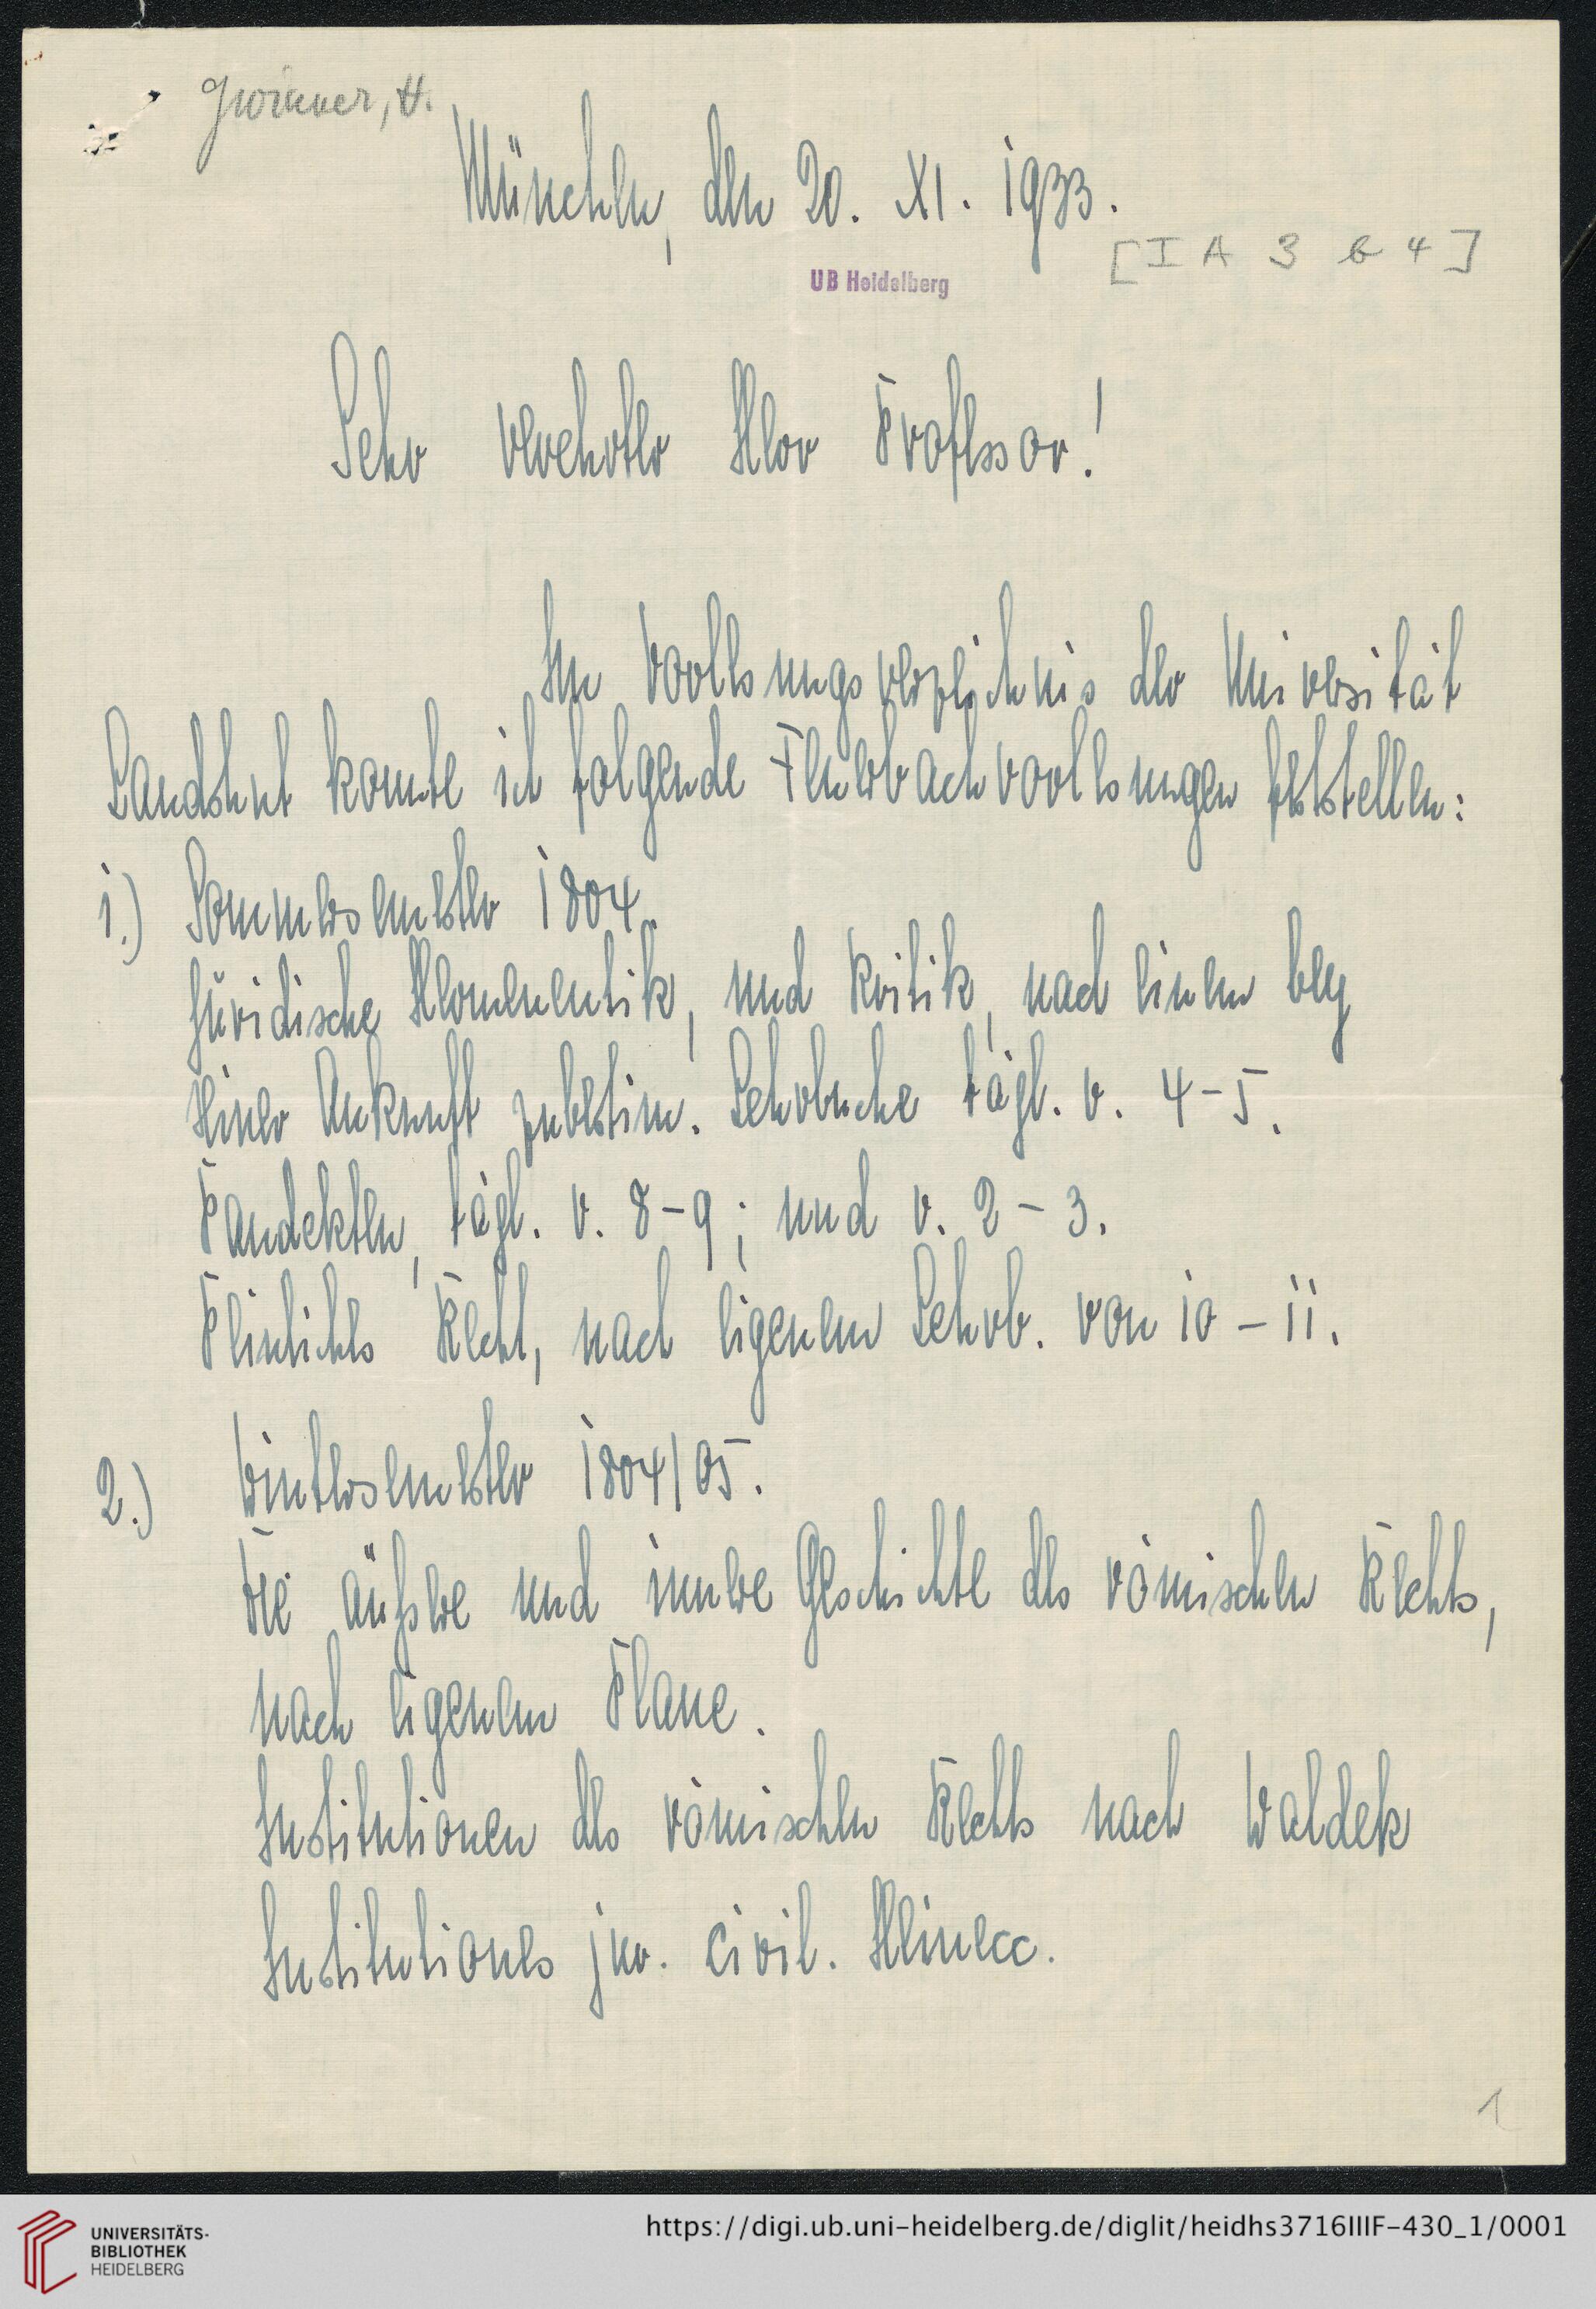 Gwinner, H.
München, den 20. XI. 1933.
[I A 3 b 4]
UB Heidelberg
Sehr verehrter Herr Professor!
Im Vorlesungsverzeichnis der Universität
Landshut konnte ich folgende Feuerbachvorlesungen feststellen:
1.) Sommersemester 1804.
Juridische Hermeneutik, und Kritik, nach einem bey
seiner Ankunft zubestim. Lehrbuche tägl. v. 4-5.
Pandekten, tägl. v. 8-9; und v. 2-3.
Peinliches Recht, nach eigenem Lehrb. von 10-11.
2.) Wintersemester 1804/05.
Die äußere und innere Geschichte des römischen Rechts,
nach eigenem Plane.
Institutionen des römischen Rechts nach Waldek
Institutiones jur. civil. Heinecc.
1
UNIVERSITÄTS-
BIBLIOTHEK
HEIDELBERG
https://digi.ub.uni-heidelberg.de/diglit/heidhs3716IIIF-430_1/0001